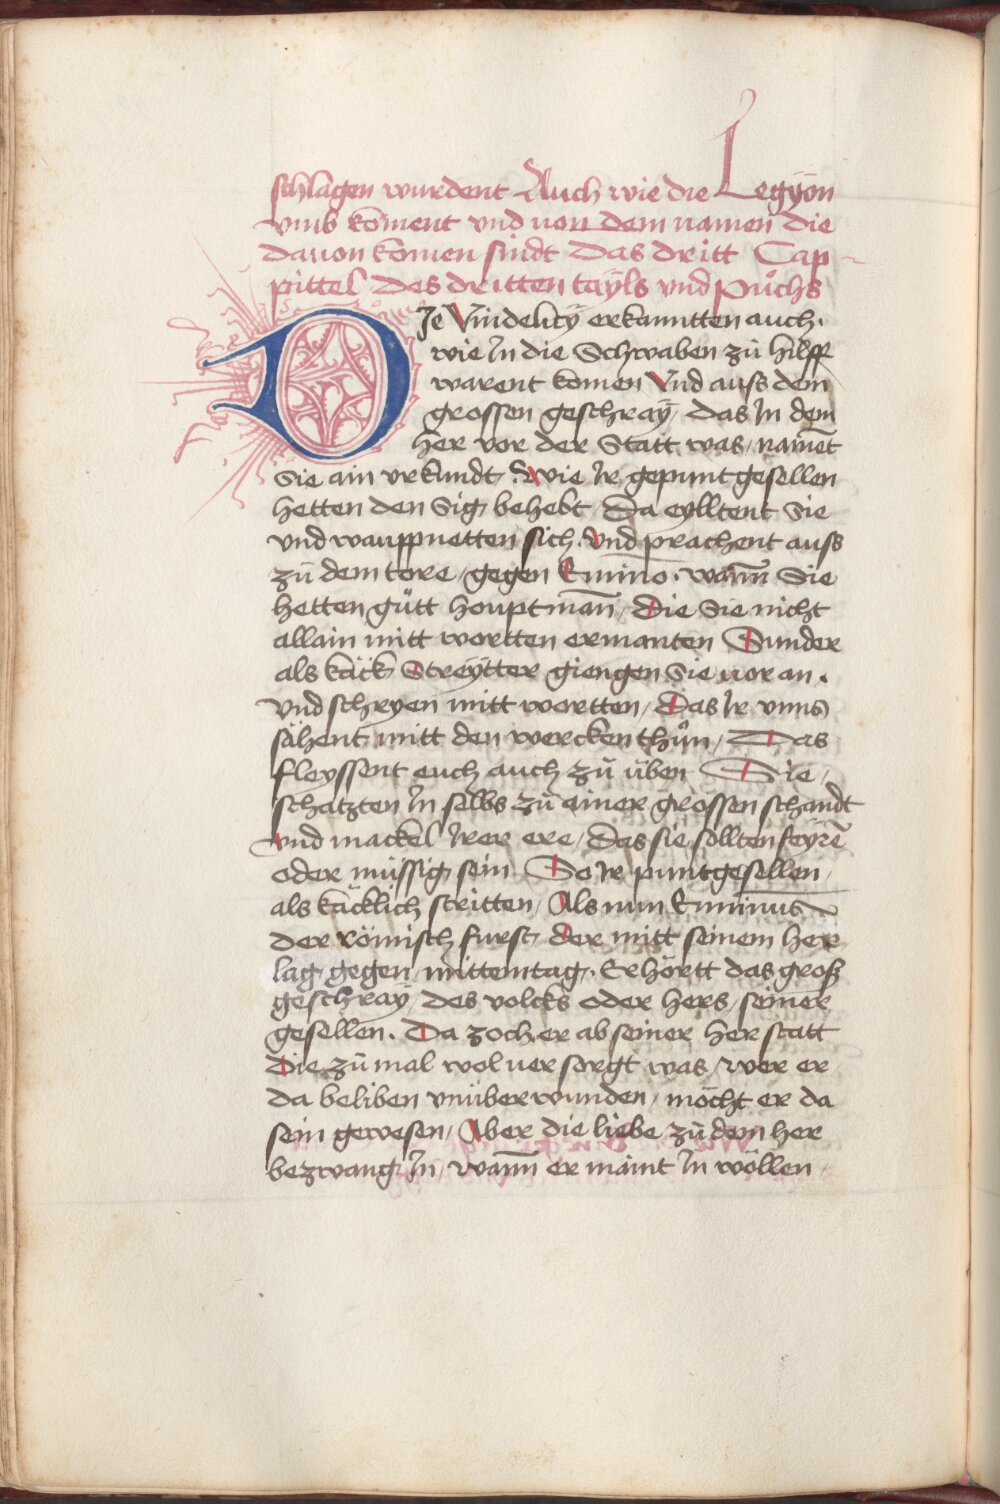 schlagen wurdent Auch wie die Legyon
vmb koment vnd von dem namen die
dauon komen sindt Das dritt Cap-
pittel Des dritten tayls vnd Půchs
DJe Vindelicy erkanntten auch·
wie Jn die Schwaben zů hilff
warent komen Vnd auss dem
grossen geschray, das Jn dem
her vor der Statt was, namēt
Sie ain vrkundt, Wie Jr gepunt gesellen
hetten den Sig behebt, Da eylltent Sie
vnd wauppnetten sich, Vnd prachent auss
zů dem tore, gegen Eminio. wann̄ Sie
hetten gůtt houptman̄, die Sie nicht
allain mitt wortten ermanten Sunder
als käck Streÿtter giengen sie uor an.
Vnd schryen mitt wortten, Das Jr vnns
sähent mitt den wercken thůn, Das
fleyssent euch auch zů üben Sie,
schatzten Jn selbs zů ainer grossen schandt
vnd mackel Jrer ere, das sie sollten feyrē
oder müssig sein So Jr puntgesellen,
als käcklich stritten, Als nun Eminius
der römisch furst, der mitt seinem her
lag gegen mittemtag, Erhörtt das groß
geschray des volcks oder hers, seiner
gesellen. Da zoch er ab seiner her statt
Die zů mal wol uersorgt was, wer er
da beliben vnüberwunden, möcht er da
sein gewesen, Aber die liebe zů dem her
bezwang Jn, wann̄ er maint Jn wöllen,